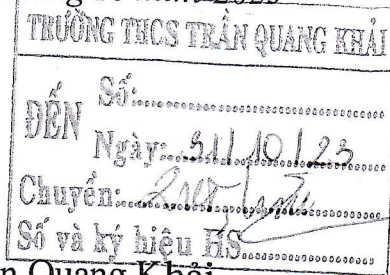 TRƯỜNG THCS TRẦN QUANG KHẢI
ĐẾN
Số:
Ngày: 31/10/23
Chuyển:
Số và ký hiệu HS
n Quang Khải